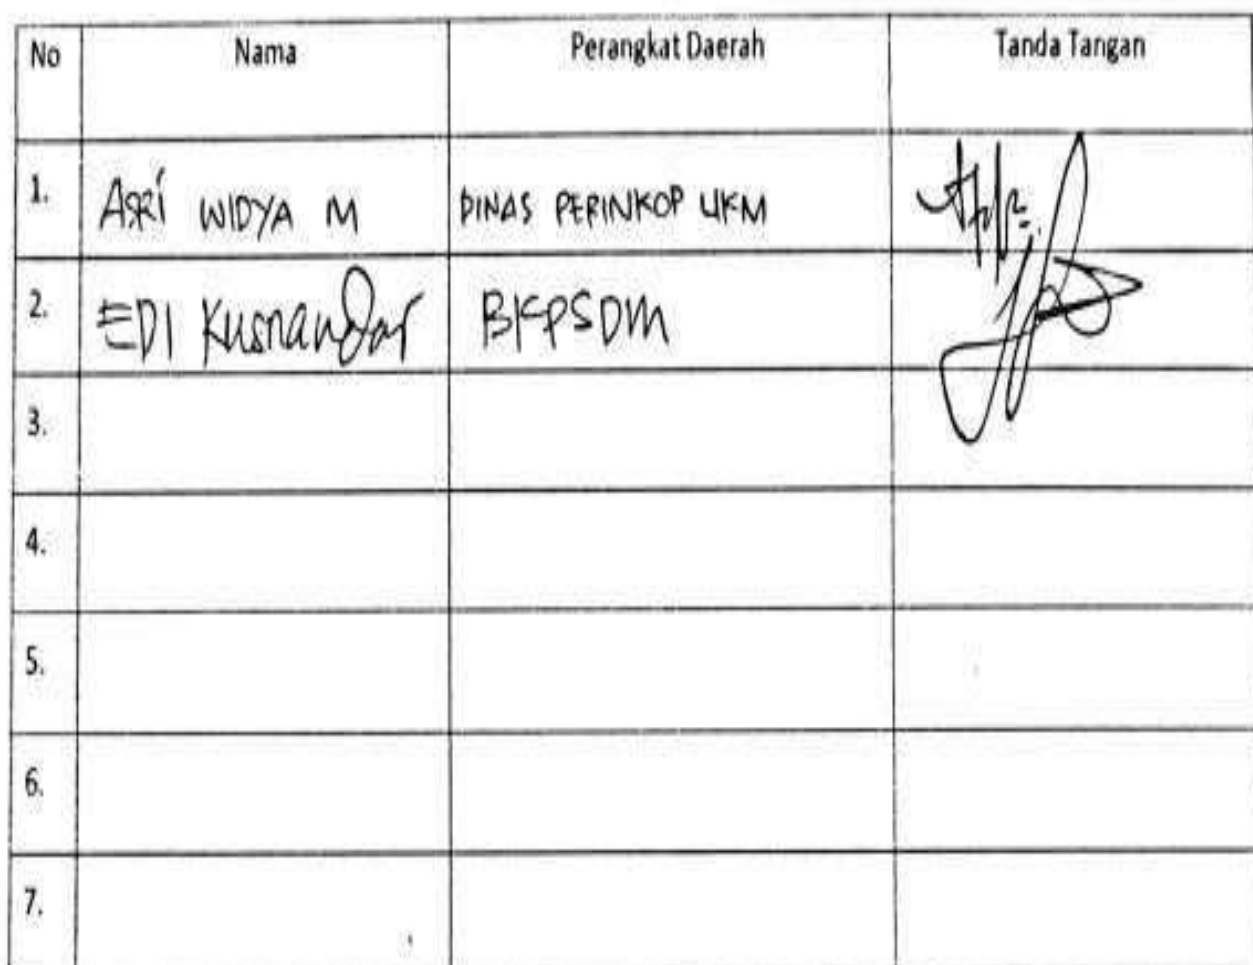 No Nama Perangkat Daerah Tanda Tangan
1. ASRI WIDYA M DINAS PERINKOP UKM
2. EDI Kusnandar BKPSDM
3.
4.
5.
6.
7.